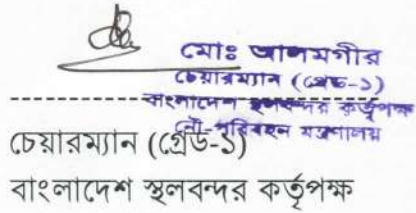 মোঃ আলমগীর
চেয়ারম্যান (গ্রেড-১)
বাংলাদেশ স্থলবন্দর কর্তৃপক্ষ
নৌ-পরিবহন মন্ত্রণালয়
চেয়ারম্যান (গ্রেড-১)
বাংলাদেশ স্থলবন্দর কর্তৃপক্ষ